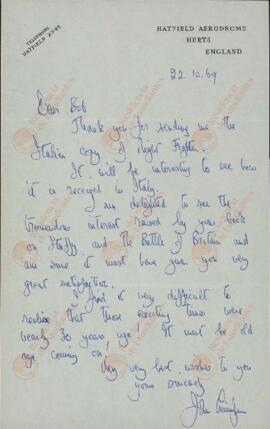 TELEPHONE
HATFIELD 2345
HATFIELD AERODROME
HERTS
ENGLAND
22.10.69
Dear Bob
Thank you for sending me the
Italian copy of Night Fighter.
It will be interesting to see how
it is received in Italy.
I am delighted to see the
tremendous interest raised by your book
on Stuffy and the Battle of Britain and
am sure it must have given you very
great satisfaction.
I find it very difficult to
realise that those exciting times were
nearly 30 years ago! It must be old
age coming on!
My very best wishes to you
yours sincerely
John